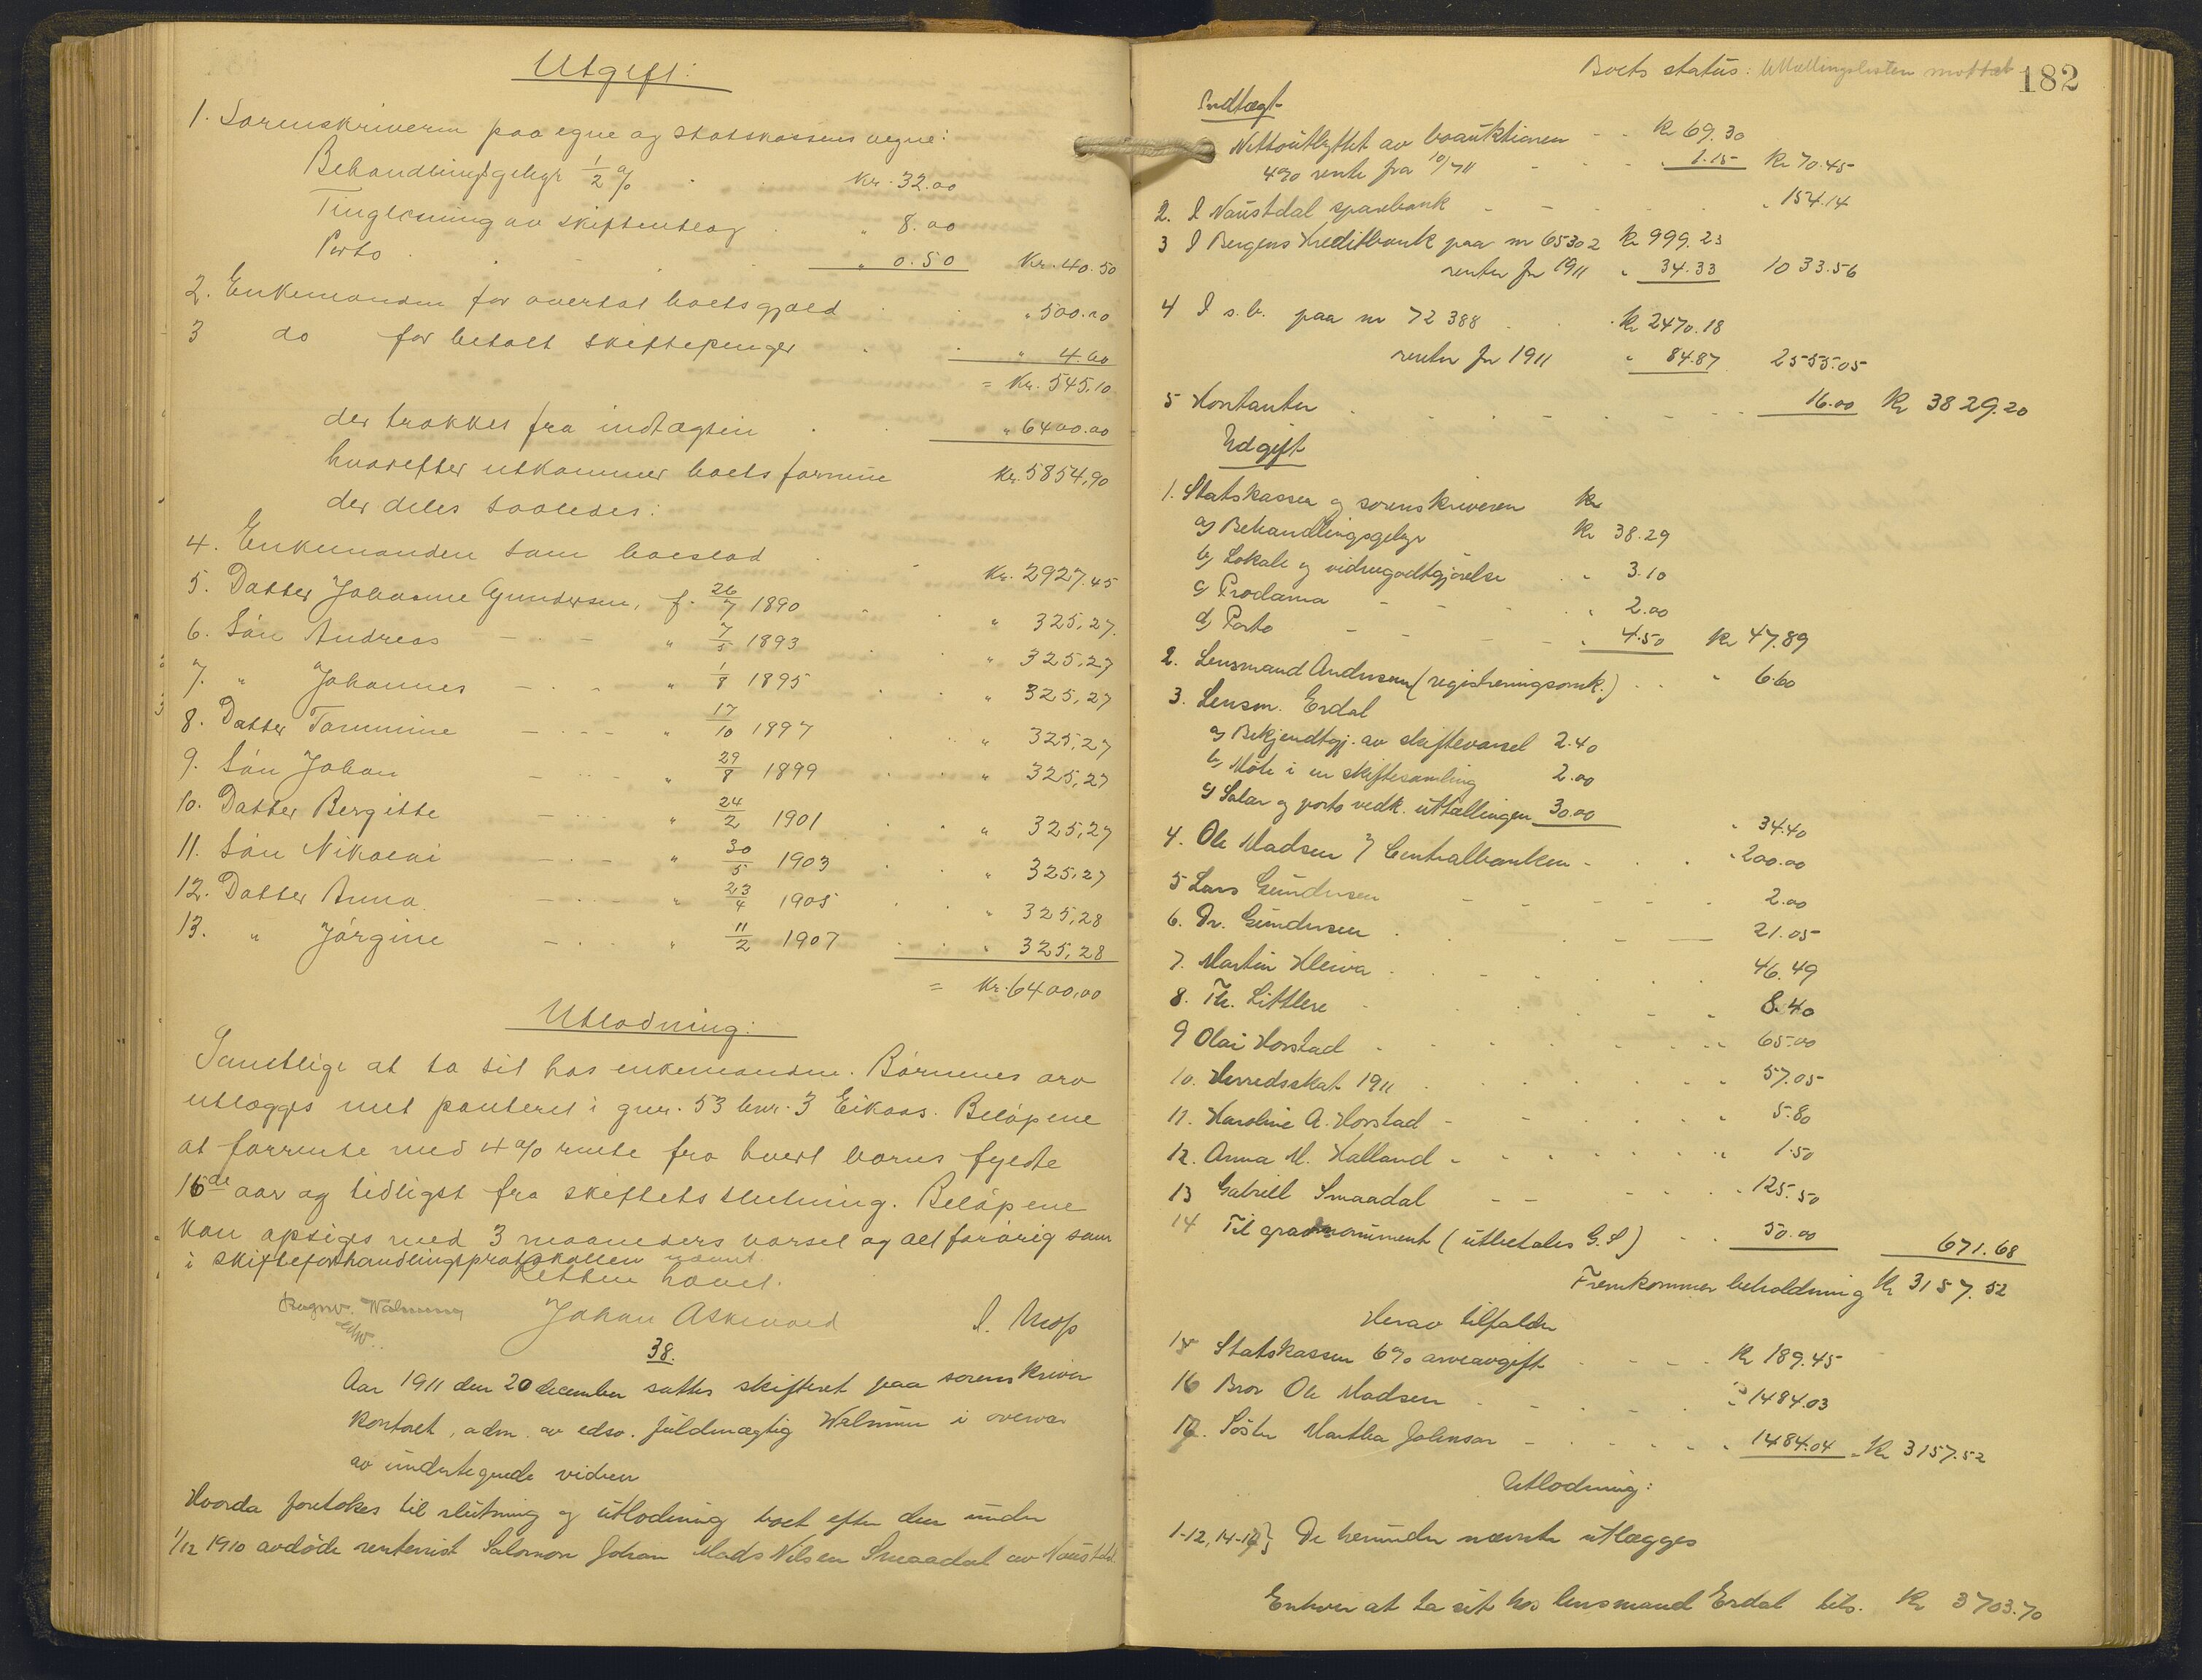 Utgift:
1. Sorenskriveren paa egne og statskassens vegne:
Behandlingsgebyr 1/2 % . . Kr. 32.00
Tinglæsning av skifteutlæg . " 8.00
Porto . . . " 0.50 Kr. 40.50
2. Enkemanden for overtat boets gjæld . . " 500.00
3 do for betalt skiftepenger . . " 4.60
= Kr. 545,10
der trækkes fra indtægten . . " 6400.00
hvorefter utkommer boets formue Kr. 5854,90
der deles saaledes:
4. Enkemanden som boeslod . . Kr. 2927.45
5. Datter Johanne Gundersen, f. 26/7 1890 . . " 325,27.
6. Sön Andreas — . — " 7/5 1893 . . " 325,27
7. " Johannes — . - " 1/8 1895 . . " 325,27
8. Datter Tommine — . - - " 17/10 1897 . . " 325,27
9. Sön Johan — . . . - " 29/8 1899 . . " 325,27
10. Datter Bergitte — . . . " 24/2 1901 . . " 325,27
11. Sön Nikolai — . . - " 30/5 1903 . . " 325,27
12. Datter Anna — . . - " 23/4 1905 . . " 325,28
13. " Jörgine — . . " 11/2 1907 . . " 325,28
= Kr. 6400,00
Utlodning:
Samtlige at ta sit hos enkemanden. Börnenes arv
utlægges med panteret i gnr. 53 bnr. 3 Eikaas. Belöpene
at forrente med 4 % rente fra hvert barns fyldte
16de aar og tidligst fra skiftets slutning. Belöpene
kan opsiges med 3 maaneders varsel og alt forövrig som
i skifteforhandlingsprotokollen nævnt.
Retten hævet.
Johan Askevold
38.
Aar 1911 den 20 december sattes skifteret paa sorenskriver
kontoret, adm. av edsv. fuldmægtig Walnum i overvær
av undertegnede vidner
Hvorda foretokes til slutning og utlodning boet efter den under
1/12 1910 avdöde rentenist Salomon Johan Mads Nilsen Smaadal av Naustdal
182
Boets status: Utlællingslisten mottat
Indtægt
Nettoutbyttet av boauktionen - - Kr 69.30
4% rente fra 10/7 11 - - - " 1.15 Kr 70.45
2. I Naustdal sparebank - - - . . " 154.14
3 I Bergens Kreditbank paa nr 65302 Kr 999.23
renter for 1911 " 34.33 1033.56
4 I s.b. paa nr 72388 . . Kr 2470.18
renter for 1911 " 84.87 2555.05
5 Kontanter . . . . . . 16.00 Kr 3829.20
Udgift
1. Statskassen og sorenskriveren Kr
a) Behandlingsgebyr Kr 38.29
b) Lokale og vidnegodtgjörelse . " 3.10
c) Proclama - - - . " 2.00
d) Porto - - - - " 4.50 Kr 47.89
2. Lensmand Andersen (registreringsomk.) . . " 6.60
3. Lensm. Erdal
a) Bekjendtgj. av skiftevarsel 2.40
b) Möte i en skiftesamling 2.00
c) Salær og porto vedk. uttællingen 30.00
" 34.40
4. Ole Madsen 7 Centralbanken - . . " 200.00
5 Lars Gundersen - - - - . 2.00
6. Dr. Gundersen . . . - — 21.05
7. Martin Kleiva . . . . . 46.49
8. Th. Littlere - . . . " 8.40
9 Olai Horstad - . . . . " 65.00
10. Herredsskat 1911 . . . . " 57.05
11. Karoline A. Horstad - - . . " 5.80
12. Anna M. Halland - . . . . " 1.50
13 Gabriel Smaadal - - . . . " 125.50
14 Til gravmonument (utbetales G.S) - . 50.00 671.68
Fremkommer beholdning Kr 3157.52
Herav tilfalder
15 Statskassen 6% arveavgift . - - . Kr 189.45
16 Bror Ole Madsen . . . . " 1484.03
17. Söster Martha Johnson - . . . " 1484.04 Kr 3157.52
Utlodning:
1-12, 14-17} De herunder nævnte utlægges
Enhver at ta sit hos lensmand Erdal tils. Kr 3703.70